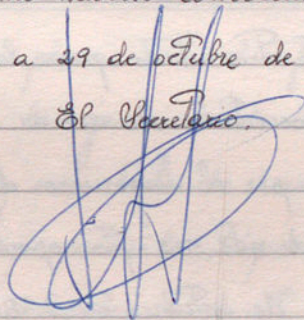 a 29 de octubre de
El Secretario,